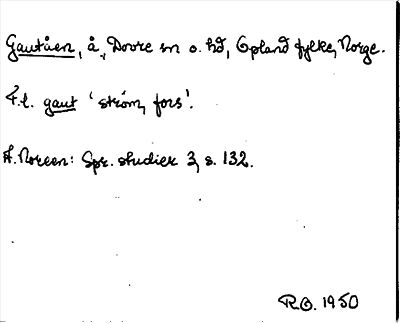 Gautåen, å, Dovre sn o. hd, Opland fylke, Norge.
F.l. gaut 'ström, fors'.
A. Noreen: Spr. studier 3, s. 132.
R.O. 1950